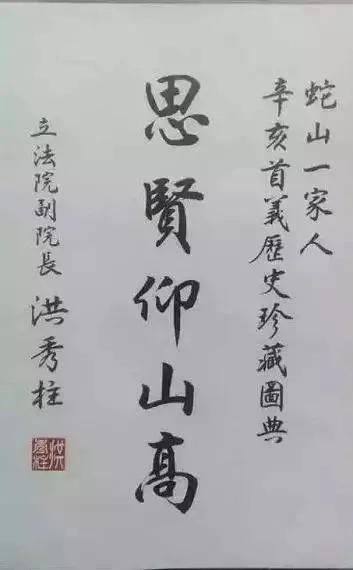 蛇山一家人
辛亥首義歷史珍藏圖典
思賢仰山高
立法院副院長 洪秀柱
洪秀柱